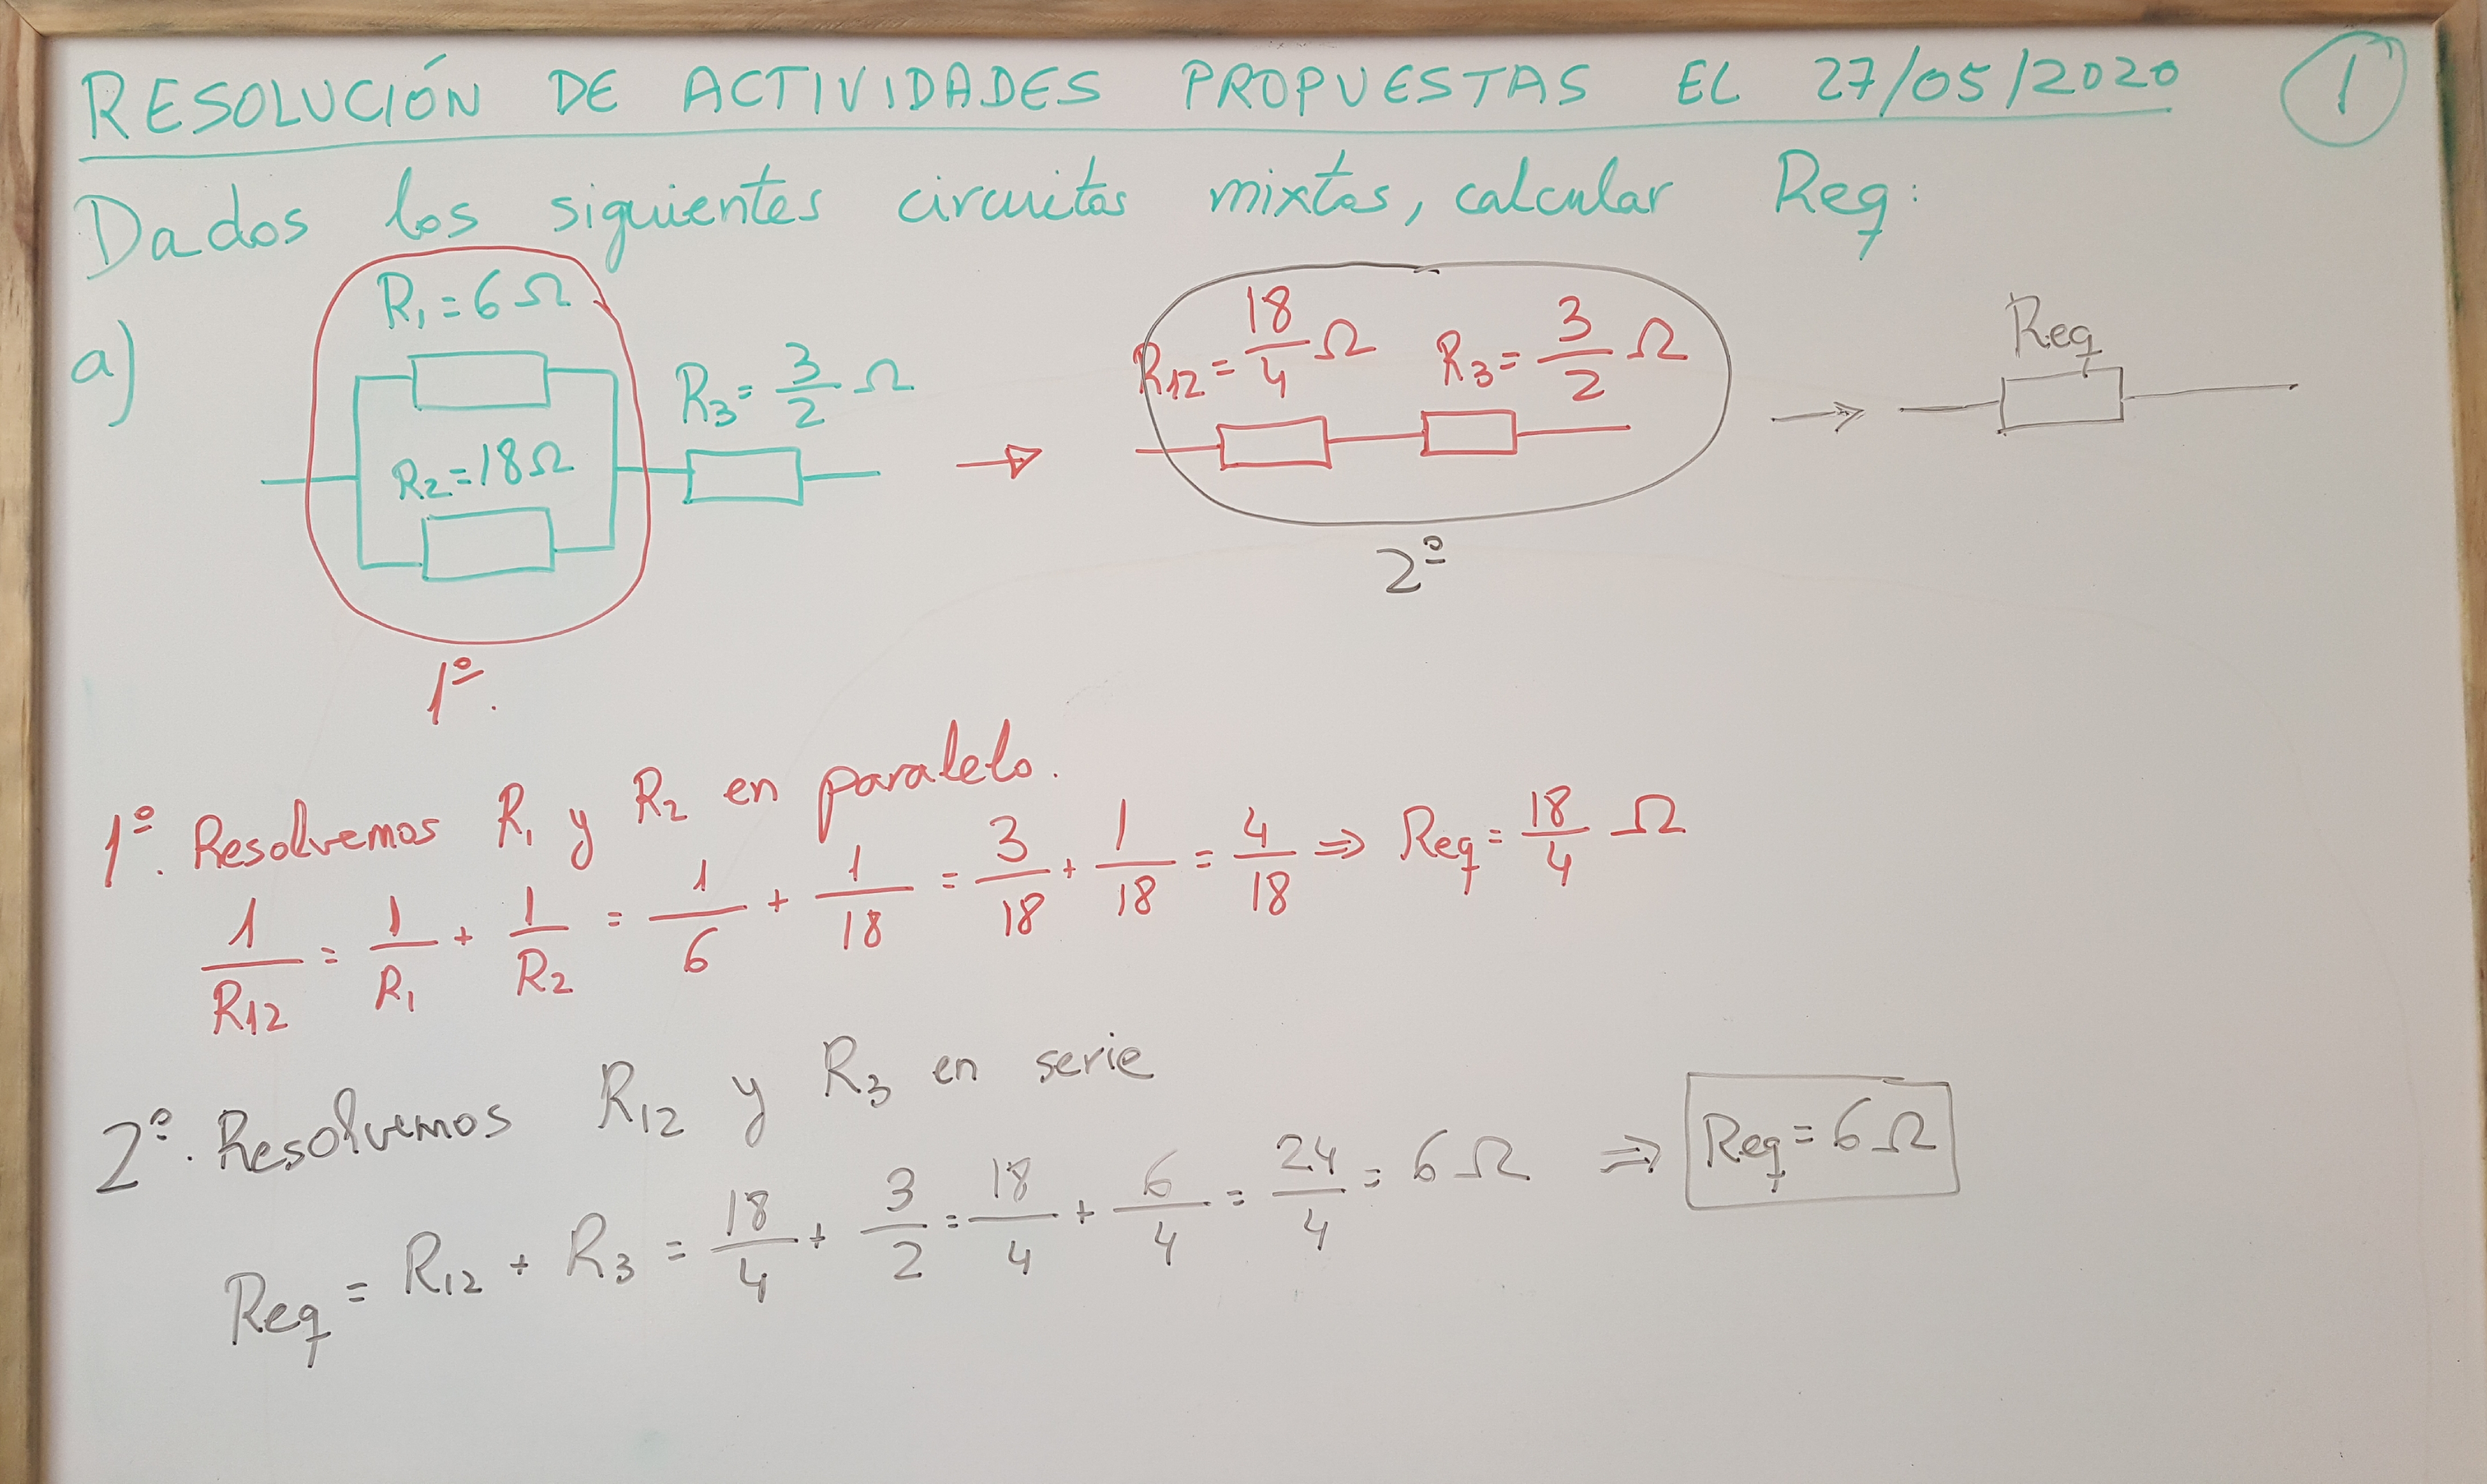 RESOLUCIÓN DE ACTIVIDADES PROPUESTAS EL 27/05/2020 1
Dados los siguientes circuitos mixtos, calcular Req:
a)
R1=6Ω
R2=18Ω
R3=3/2 Ω
1º.
R12=18/4 Ω R3=3/2 Ω
2º
Req
1º. Resolvemos R1 y R2 en paralelo.
1/R12 = 1/R1 + 1/R2 = 1/6 + 1/18 = 3/18 + 1/18 = 4/18 ⇒ Req = 18/4 Ω
2º. Resolvemos R12 y R3 en serie
Req = R12 + R3 = 18/4 + 3/2 = 18/4 + 6/4 = 24/4 = 6Ω ⇒ Req = 6Ω